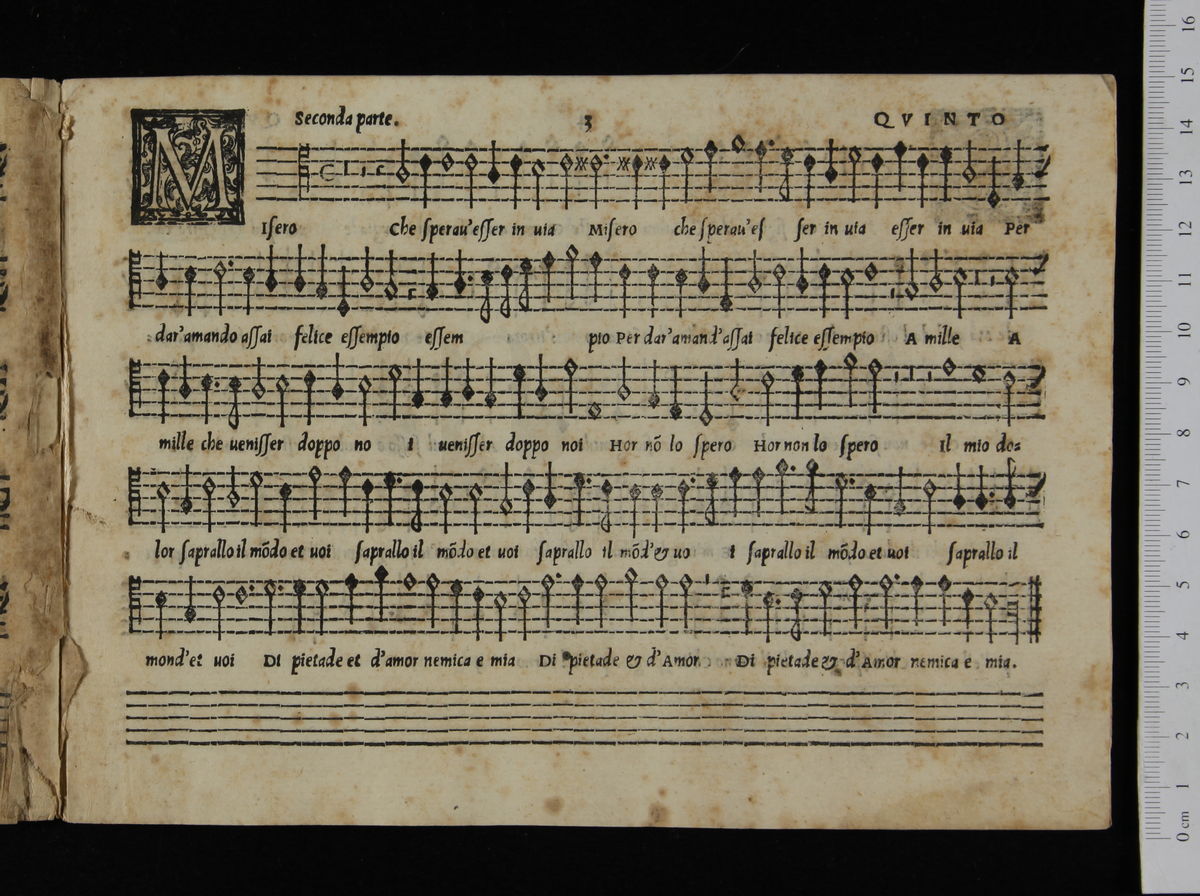 Seconda parte. 3 QVINTO
MIſero Che ſperau'eſſer in uia Miſero che ſperau'eſ ſer in uia eſſer in uia Per
dar'amando aſſai felice eſſempio eſſem pio Per dar'amand'aſſai felice eſſempio A mille A
mille che ueniſſer doppo no i ueniſſer doppo noi Hor nõ lo ſpero Hor non lo ſpero Il mio do=
lor ſaprallo il mõdo et uoi ſaprallo il mõdo et uoi ſaprallo il mõd'& uo i ſaprallo il mõdo et uoi ſaprallo il
mond'et uoi Di pietade et d'amor nemica e mia Di pietade & d'Amor Di pietade & d'Amor nemica e mia.
16
15
14
13
12
11
10
9
8
7
6
5
4
3
2
1
0 cm